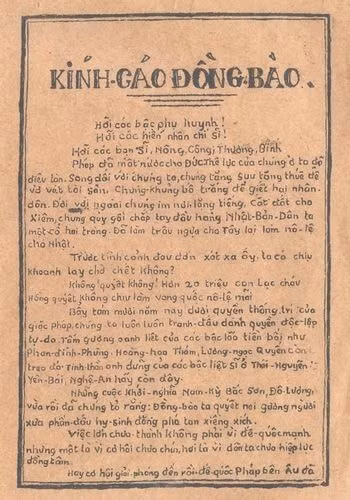 KÍNH-CÁO ĐỒNG-BÀO.
Hỡi các bậc phụ huynh!
Hỡi các hiền nhân chí sĩ!
Hỡi các bạn sĩ, Nông, Công, Thương, Binh
Pháp đã mất nước cho Đức. Thế lực của chúng ở ta đã
điêu tàn. Song đối với chúng ta, chúng tăng sưu tăng thuế để
vơ vét tài sản. Chúng khủng bố trắng để giết hại nhân-
dân. Đối với ngoài chúng im nơi lắng tiếng. Cắt đất cho
Xiêm, chúng quỳ gối chắp tay đầu hàng Nhật-Bản. Dân ta
một cổ hai tròng. Đã làm trâu ngựa cho Tây lại làm nô-lệ
cho Nhật.
Trước tình cảnh đau đớn xót xa ấy, ta có chịu
khoanh tay chờ chết không?
Không! quyết không! Hơn 20 triệu con Lạc cháu
Hồng quyết không chịu làm vong quốc nô-lệ mãi
Bẩy tám mươi năm nay dưới quyền thống trị của
giặc Pháp, chúng ta luôn luôn tranh-đấu dành quyền độc-lập
tự-do. Tấm gương oanh liệt của các bậc lão tiền bối như
Phan-đình-Phùng, Hoàng-hoa Thám, Lương-ngọc Quyến còn
treo đó. Tinh-thần anh dũng của các bậc liệt sĩ ở Thái-Nguyên
Yên-Bái, Nghệ-An hãy còn đây.
Những cuộc Khởi-nghĩa Nam-Kỳ, Bắc Sơn, Đô-Lương,
vừa rồi đã chứng tỏ rằng: Đồng bào ta quyết nối gương người
xưa phấn-đấu hy-sinh đặng phá tan xiềng xích.
Việc lớn chưa thành không phải vì đế-quốc mạnh
nhưng một là vì cơ hội chưa chín, hai là vì dân ta chưa hiệp lực
đồng tâm.
Nay cơ hội giải-phóng đến rồi. đế-quốc Pháp bên Âu đã